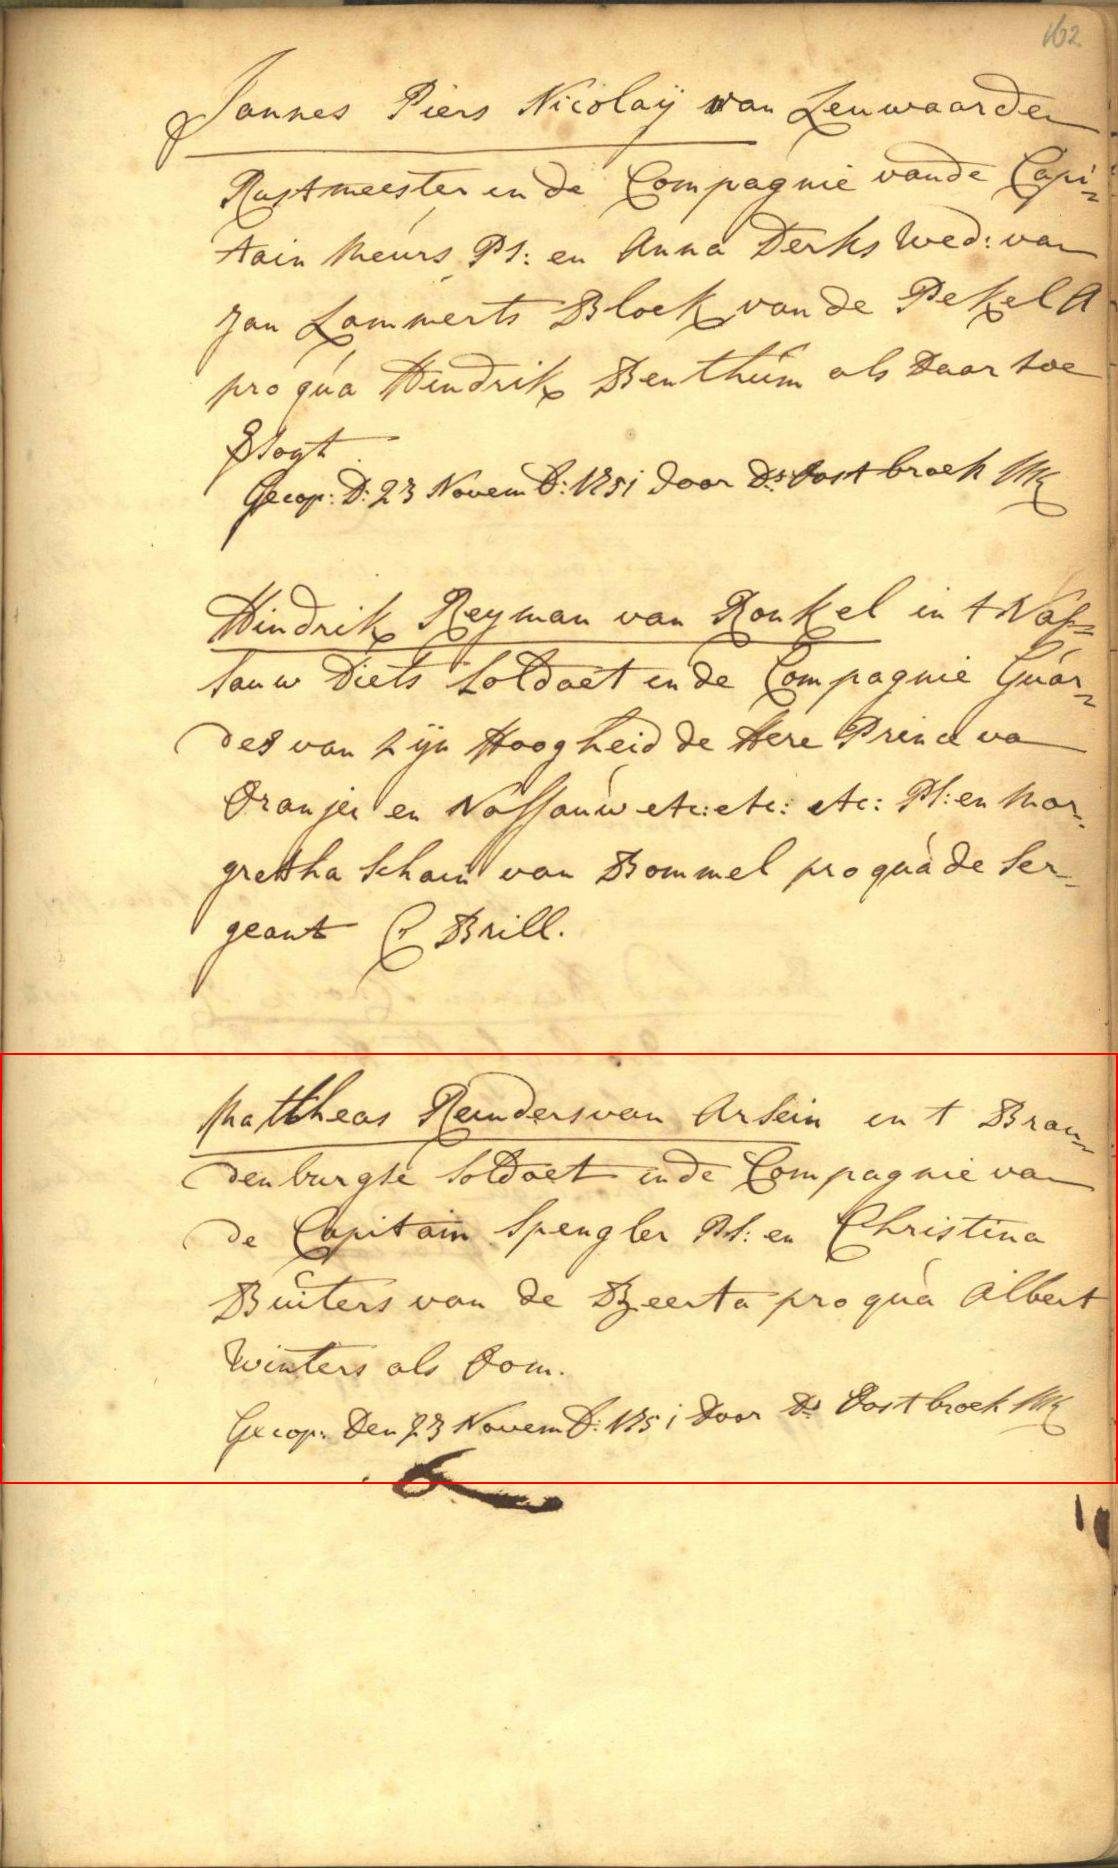 162
Jannes Piers Nicolaij van Leuwaarden
Rustmeester in de Compagnie van de Capi=
tain Meurs Pl: en Anna Derks Wed: van
Jan Lammerts Bloek van de Pekel A
pro qua Hindrik Benthum als Daar toe
Gecop: D: 23 Novem D: 1751 door Ds Oostbroek
Hindrik Reyman van Ronkel in t Nas=
sauw Diets Soldaet in de Compagnie Guar=
des van zijn Hoogheid de Here Prince va
Oranjen en Nassauw etc: etc: etc: Pl: en Mar=
gretha Schain van Bommel pro qua de Ser=
geant C Brill.
Mattheas Reinders van Arsein in t Bran=
denburgse Soldaet in de Compagnie van
de Capitain Spengler Pl: en Christina
Buiters van de Beerta pro qua Albert
Winters als Oom.
Gecop: Den 23 Novem D: 1751 Door Ds Oostbroek